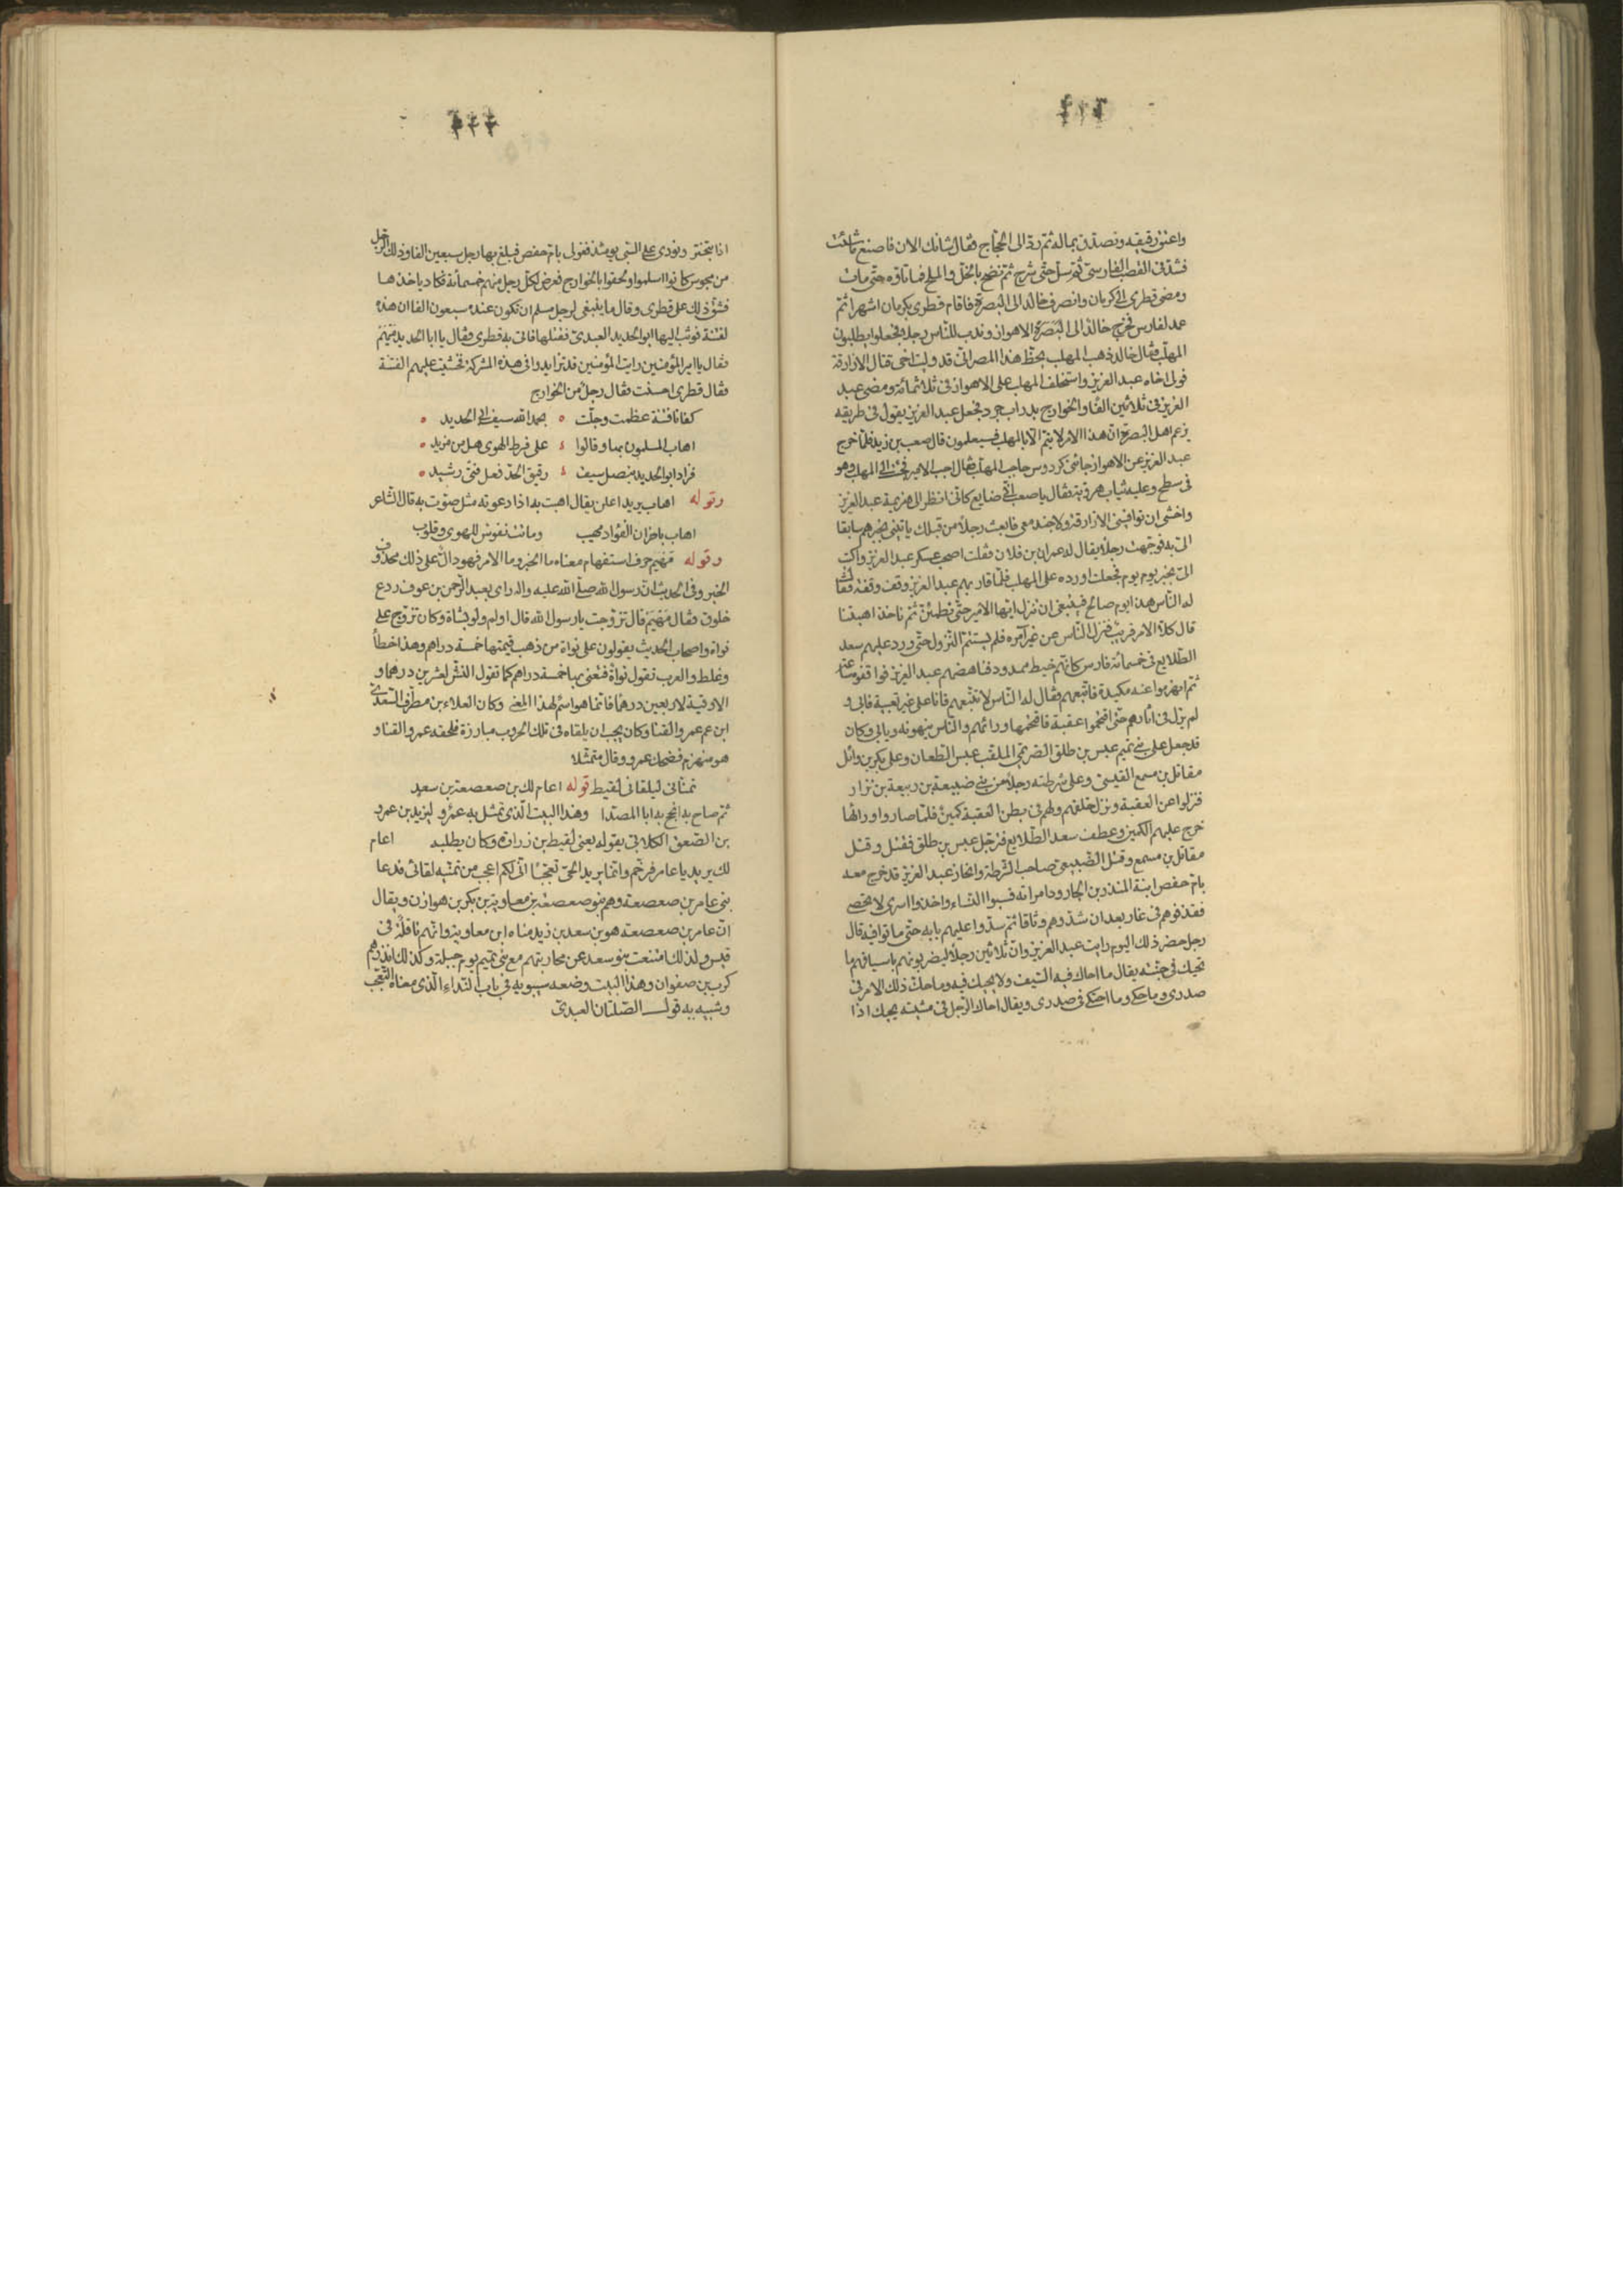 واعتق رقيقه وتصدق بماله ثم رد الى الحجاج فقال شانك الان فاصنع ما شئت
فشد فى القصب الفارسى ثم سل حتى شرح ثم نضح بالخل والملح فما تاوه حتى مات
ومضى قطرى الى كرمان وانصرف خالد الى البصرة فاقام قطرى بكرمان اشهرا ثم
عمد لفارس فخرج خالد الى الاهواز وندب للناس رجلا فجعلوا يطلبون
المهلب فقال خالد ذهب المهلب بحظ هذا المصر انى قد وليت اخى قتال الازارقة
فولى اخاه عبد العزيز واستخلف المهلب على الاهواز فى ثلاثمائة ومضى عبد
العزيز فى ثلاثين الفا والخوارج بدراب جرد فجعل عبد العزيز يقول فى طريقه
يزعم اهل البصرة ان هذا الامر لا يتم الا بالمهلب فسيعلمون قال صعب بن زيد فلما خرج
عبد العزيز عن الاهواز جاءنى كردوس حاجب المهلب فقال اجب الامير فجئت الى المهلب وهو
فى سطح وعليه ثياب هروية فقال يا صعب انا ضايع كانى انظر الى هزيمة عبد العزيز
واخشى ان توافينى الازارقة ولا جند معى فابعث رجلا من قبلك ياتينى بخبرهم سابقا
الى به فوجهت رجلا يقال له عمران بن فلان فقلت اصحب عسكر عبد العزيز واكتب
الى بخبر يوم يوم فجعلت اورده على المهلب فلما قاربهم عبد العزيز وقف وقفة فقال
له الناس هذا يوم صالح فينبغى ان ننزل ايها الامير حتى نطمئن ثم ناخذ اهبتنا
قال كلا الامر قريب فنزل الناس عن غير امره فلم يستتم النزول حتى ورد عليهم سعد
الطلايع فى خمسمائة فارس كانهم خيط ممدود فناهضهم عبد العزيز فواقفوه ساعة
ثم انهزموا عنه مكيدة فاتبعهم فقال له الناس لا تتبعهم فانا على غير تعبية فابى و
لم يزل فى اثارهم حتى اقتحموا عقبة فاقتحمها وراءهم والناس ينهونه ويابى وكان
قد جعل على بنى تميم عبس بن طلق الصريمى الملقب عبس الطعان وعلى بكر بن وائل
مقاتل بن مسمع القيسى وعلى شرطته رجلا من بنى ضبيعة بن ربيعة بن نزار
فنزلوا عن العقبة ونزل خلفهم ولهم فى بطن العقبة كمين فلما صاروا وراءها
خرج عليهم الكمين وعطف سعد الطلايع فترجل عبس بن طلق فقتل وقتل
مقاتل بن مسمع وقتل الضبيعى صاحب الشرطة وانحاز عبد العزيز قد خرج معه
بام حفص ابنة المنذر بن الجارود امراته فسبوا النساء واخذوا اسرى لا تحصى
فقذفوهم فى غار بعد ان شدوهم وثاقا ثم سدوا عليهم بابه حتى ماتوا فيه قال
رجل حضر ذلك اليوم رايت عبد العزيز وان ثلاثين رجلا ليضربونه باسيافهم ما
تحيك فى جثته يقال ما احاك فيه السيف ولا يحيك فيه وما حك ذلك الامر فى
صدرى وما حكى وما احتكى فى صدرى ويقال احاك الرجل فى مشيته يحيك اذا
اذا تبختر ونودى على السبى يومئذ فغولى بام حفص فبلغ بها رجل سبعين الفا وذلك الرجل
من مجوس كانوا اسلموا ولحقوا بالخوارج ففرض لكل رجل منهم خمسمائة فكاد ياخذها
فشق ذلك على قطرى وقال ما ينبغى لرجل مسلم ان تكون عنده سبعون الفا ان هذه
لفتنة فوثب اليها ابو الحديد العبدى فقتلها فاتى به قطرى فقال يا ابا الحديد مهيم
فقال يا امير المؤمنين رايت المؤمنين قد تزايدوا فى هذه المشركة فخشيت عليهم الفتنة
فقال قطرى احسنت فقال رجل من الخوارج
كفانا فتنة عظمت وجلت ٥ بحمد الله سيف ابى الحديد ٥
اهاب المسلمون بها وقالوا على فرط الهوى هل من مزيد ٥
فزاد ابو الحديد بنصل سيف رقيق الحد فعل فتى رشيد ٥
وقوله اهاب يريد اعلن يقال اهبت به اذا دعوته مثل صوت به قال الشاعر
اهاب باحزان الفؤاد مهيب وماتت نفوس للهوى وقلوب
وقوله مهيم حرف استفهام معناه ما الخبر وما الامر فهو دال على ذلك محذوف
الخبر وفى الحديث ان رسول الله صلى الله عليه واله راى بعبد الرحمن بن عوف ردع
خلوق فقال مهيم قال تزوجت يا رسول الله قال اولم ولو بشاة وكان تزوج على
نواة واصحاب الحديث يقولون على نواة من ذهب قيمتها خمسة دراهم وهذا خطأ
وغلط والعرب تقول نواة فتعنى بها خمسة دراهم كما تقول النش لعشرين درهما و
الاوقية لاربعين درهما فانما هو اسم لهذا المعنى وكان العلاء بن مطرف السعدى
ابن عم عمرو القنا وكان يحب ان يلقاه فى تلك الحروب مبارزة فلحقه عمرو القنا و
هو منهزم فضحك عمرو وقال متمثلا
تمنانى ليلقانى لقيط قوله اعام لك بن صعصعة بن سعد
ثم صاح به انج يدا ابا المصدا وهذا البيت الذى تمثل به عمرو ليزيد بن عمرو
بن الصعق الكلابى يقوله يعنى لقيط بن زرارة وكان يطلبه اعام
لك يريد يا عامر فرخم وانما يريد الحى تعجبا اى لكم اعجب من تمنيه لقائى فدعا
بنى عامر بن صعصعة وهم بنو صعصعة بن معاوية بن بكر بن هوازن ويقال
ان عامر بن صعصعة هو بن سعد بن زيد مناه ابن معاوية وانهم ناقلة فى
قيس ولذلك امتنعت بنو سعد عن محاربتهم مع بنى تميم يوم جبلة وكذلك انذرهم
كرب بن صفوان وهذا البيت وضعه سيبويه فى باب النداء الذى معناه التعجب
وشبيه به قول الصلتان العبدى